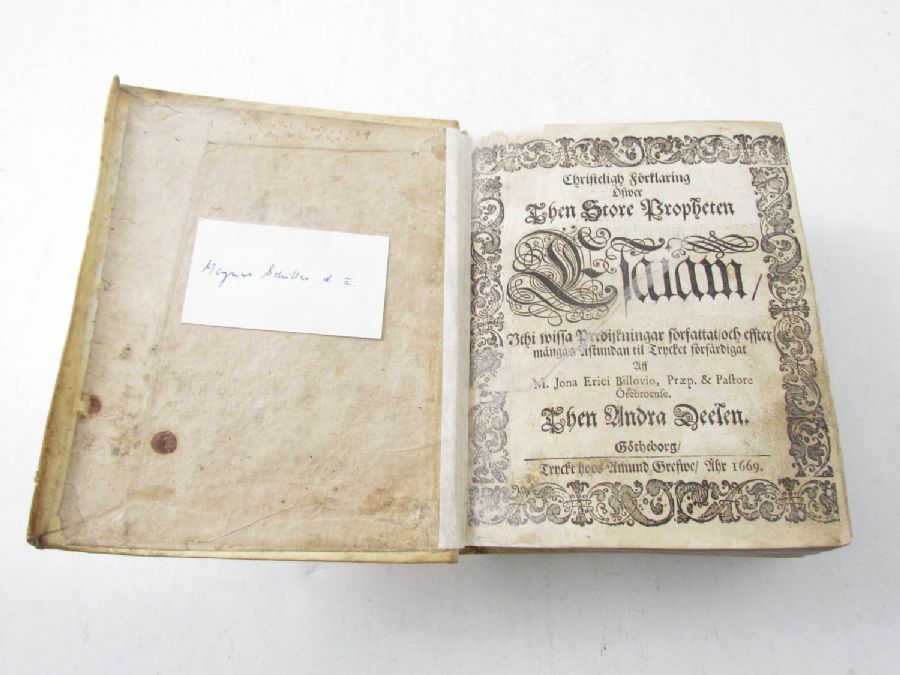 Magnus Schiller d ä.
Christeligh Förklaring
Öfwer
Then Store Propheten
Esaiam/
Vthi wissa Predijkningar författat/och effter
mångas Åstundan til Trycket förfärdigat
Aff
M. Jona Erici Billovio, Præp. & Pastore
Örebroense.
Then Andra Deelen.
Götheborg/
Tryckt hoos Amund Grefwe/ Åhr 1669.